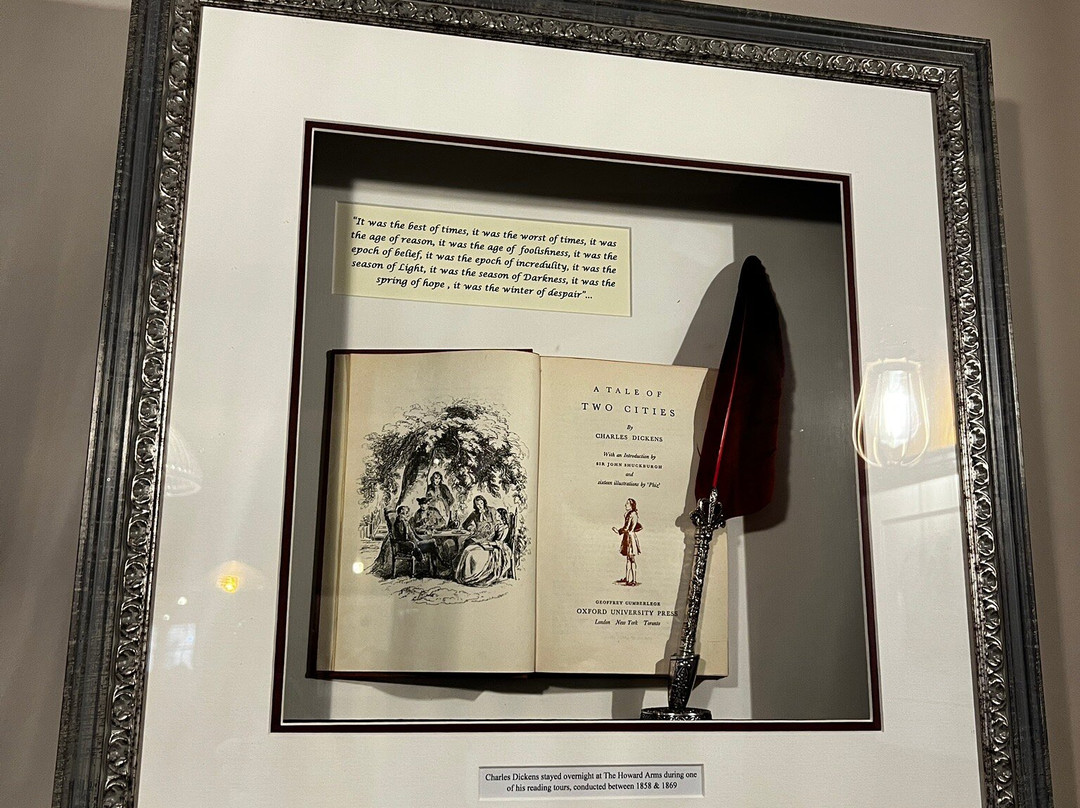 "It was the best of times, it was the worst of times, it was
the age of reason, it was the age of foolishness, it was the
epoch of belief, it was the epoch of incredulity, it was the
season of Light, it was the season of Darkness, it was the
spring of hope , it was the winter of despair"...
A TALE OF
TWO CITIES
By
CHARLES DICKENS
With an Introduction by
SIR JOHN SHUCKBURGH
and
sixteen illustrations by 'Phiz'
GEOFFREY CUMBERLEGE
OXFORD UNIVERSITY PRESS
London New York Toronto
Charles Dickens stayed overnight at The Howard Arms during one
of his reading tours, conducted between 1858 & 1869